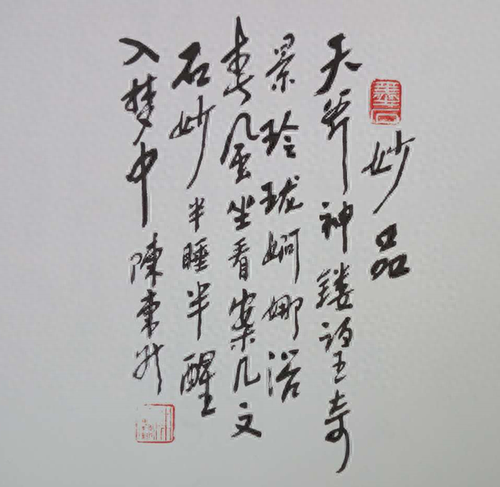 妙品
天斧神镂望奇
景玲珑婀娜浴
春风坐看案几文
石妙半睡半醒
入梦中 陳東升